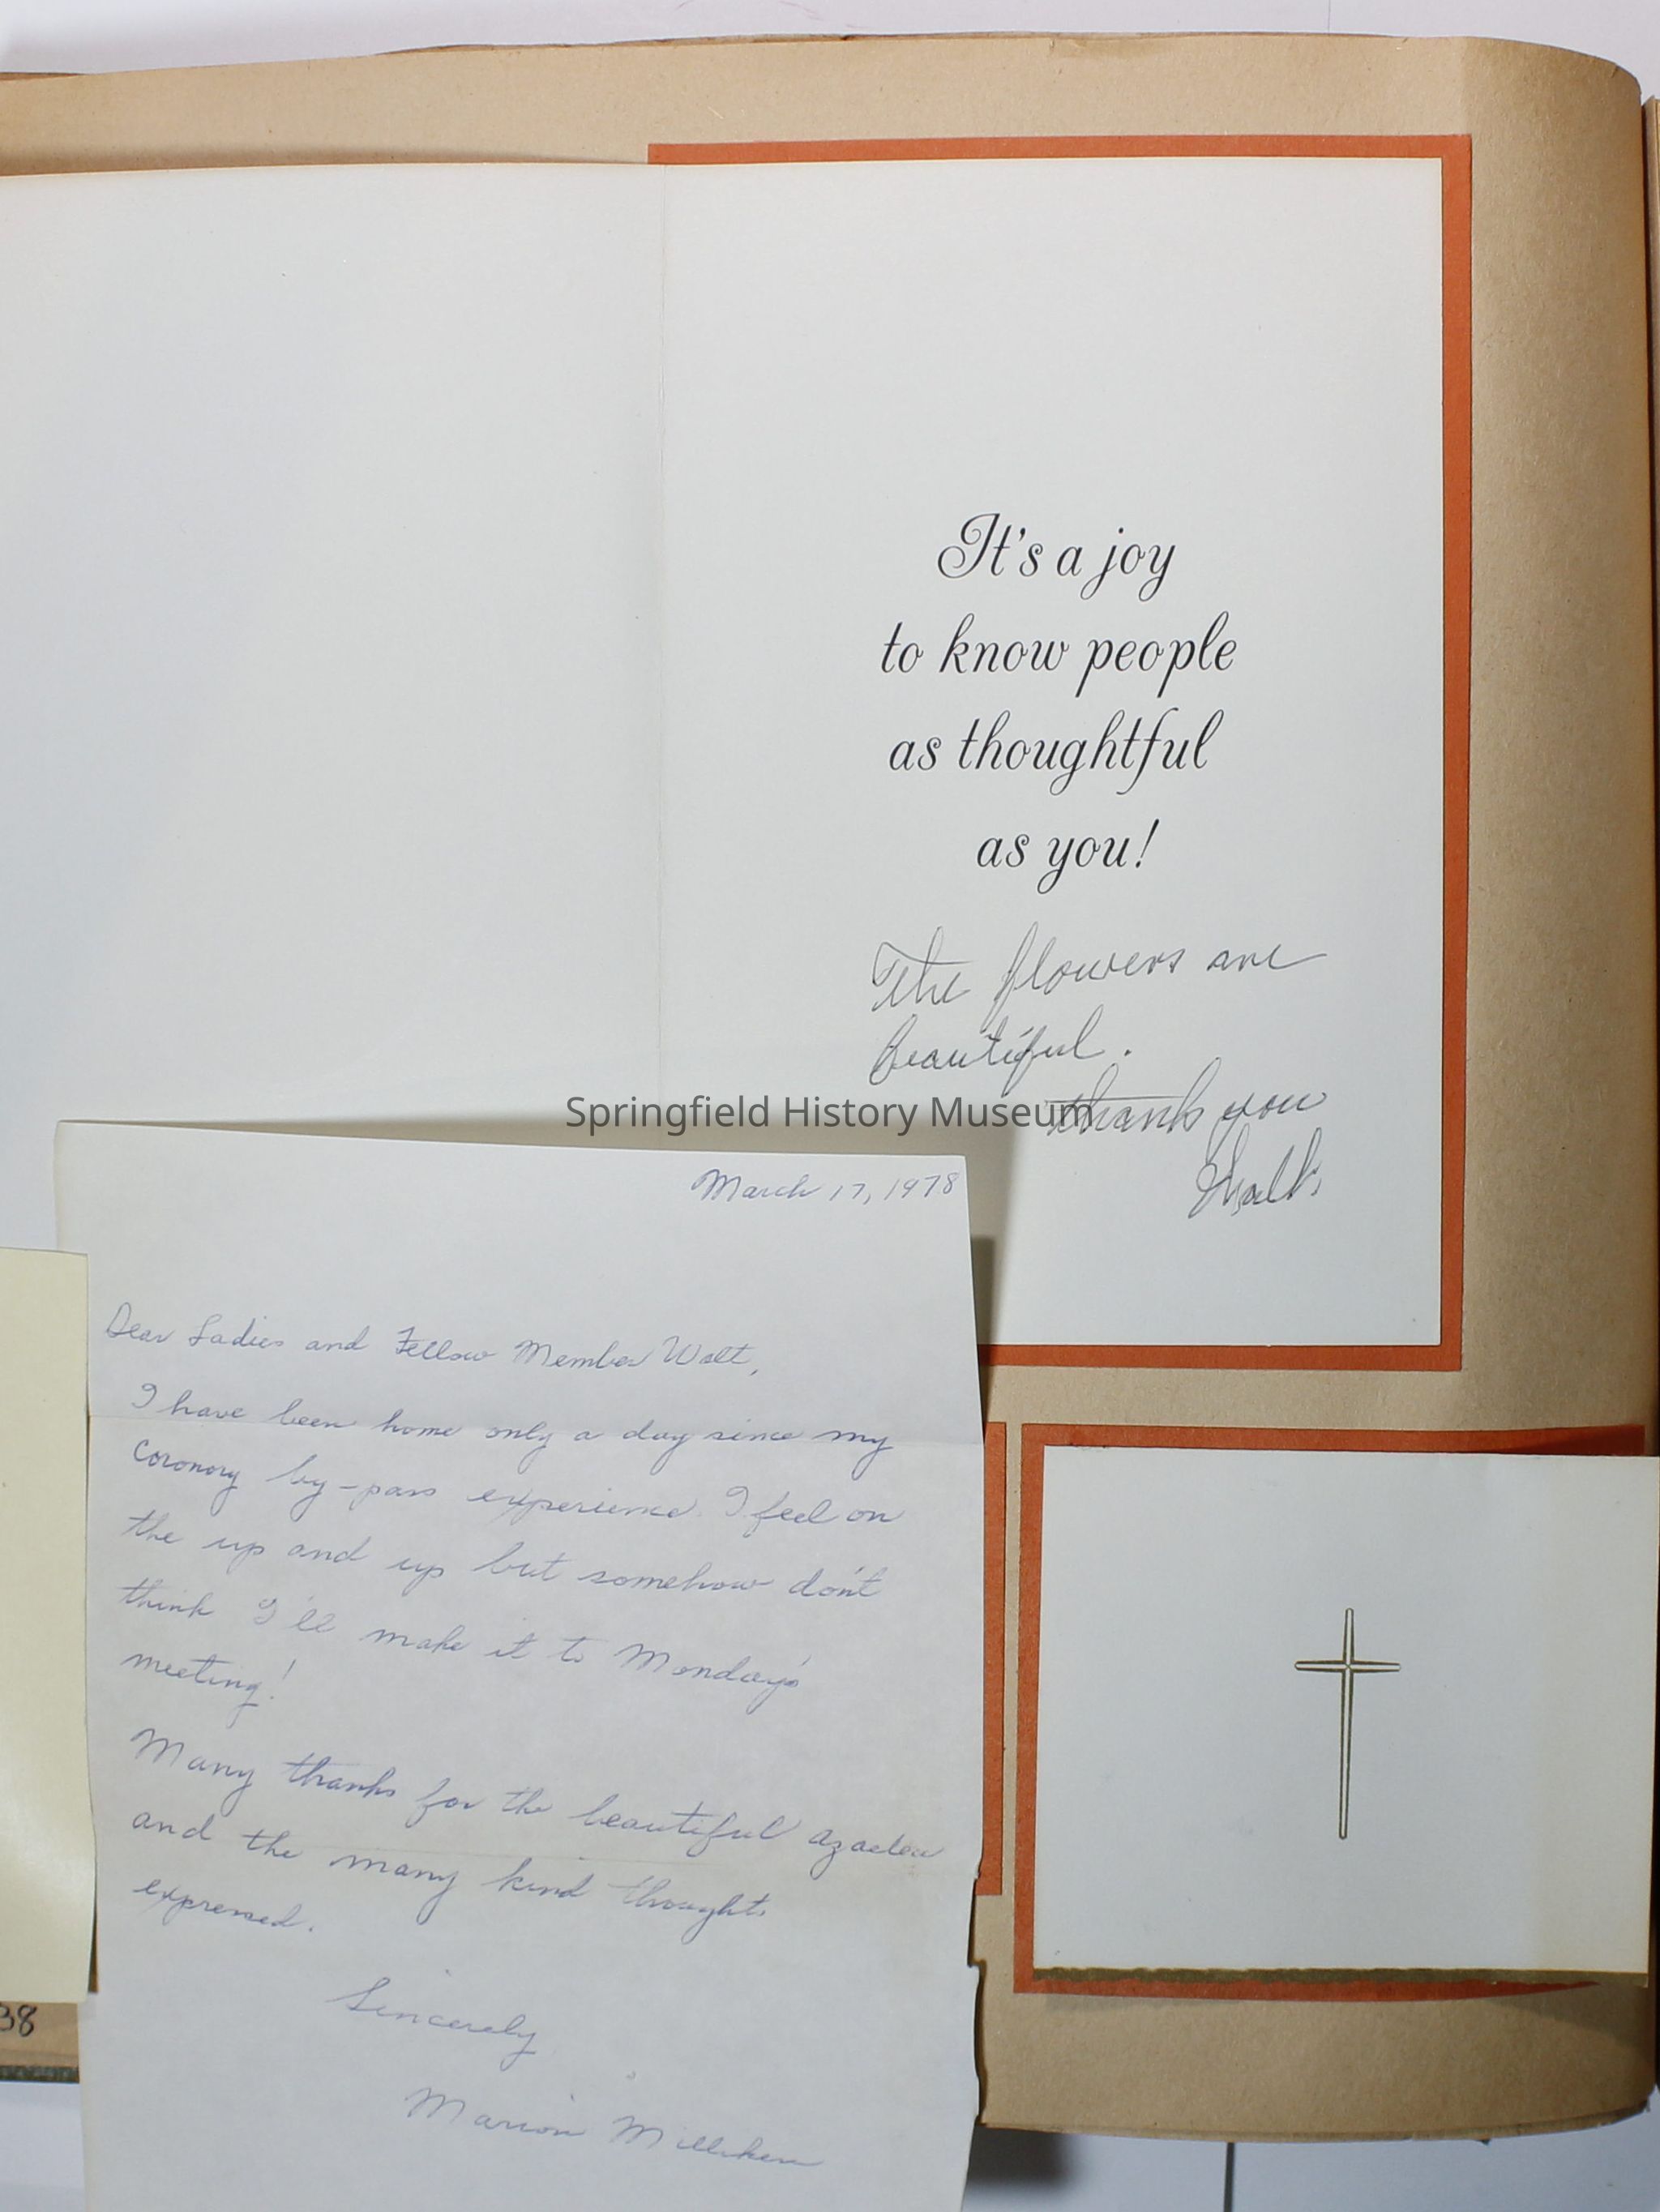 It's a joy
to know people
as thoughtful
as you!
The flowers are
beautiful.
thank you
Walt.
Springfield History Museum
March 17, 1978
Dear Ladies and Fellow Member Walt,
I have been home only a day since my
coronory by-pass experience. I feel on
the up and up but somehow don't
think I'll make it to Monday's
meeting!
Many thanks for the beautiful azaelea
and the many kind thoughts
expressed.
Sincerely
Marion Milliken
38